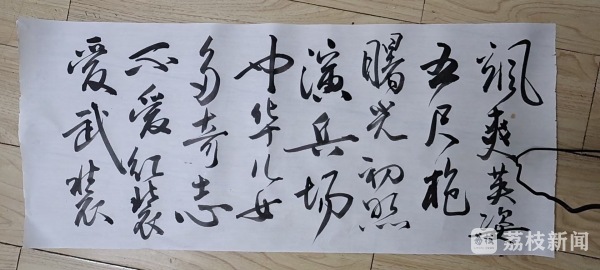 飒爽英姿
五尺枪
曙光初照
演兵场
中华儿女
多奇志
不爱红装
爱武装
荔枝新闻